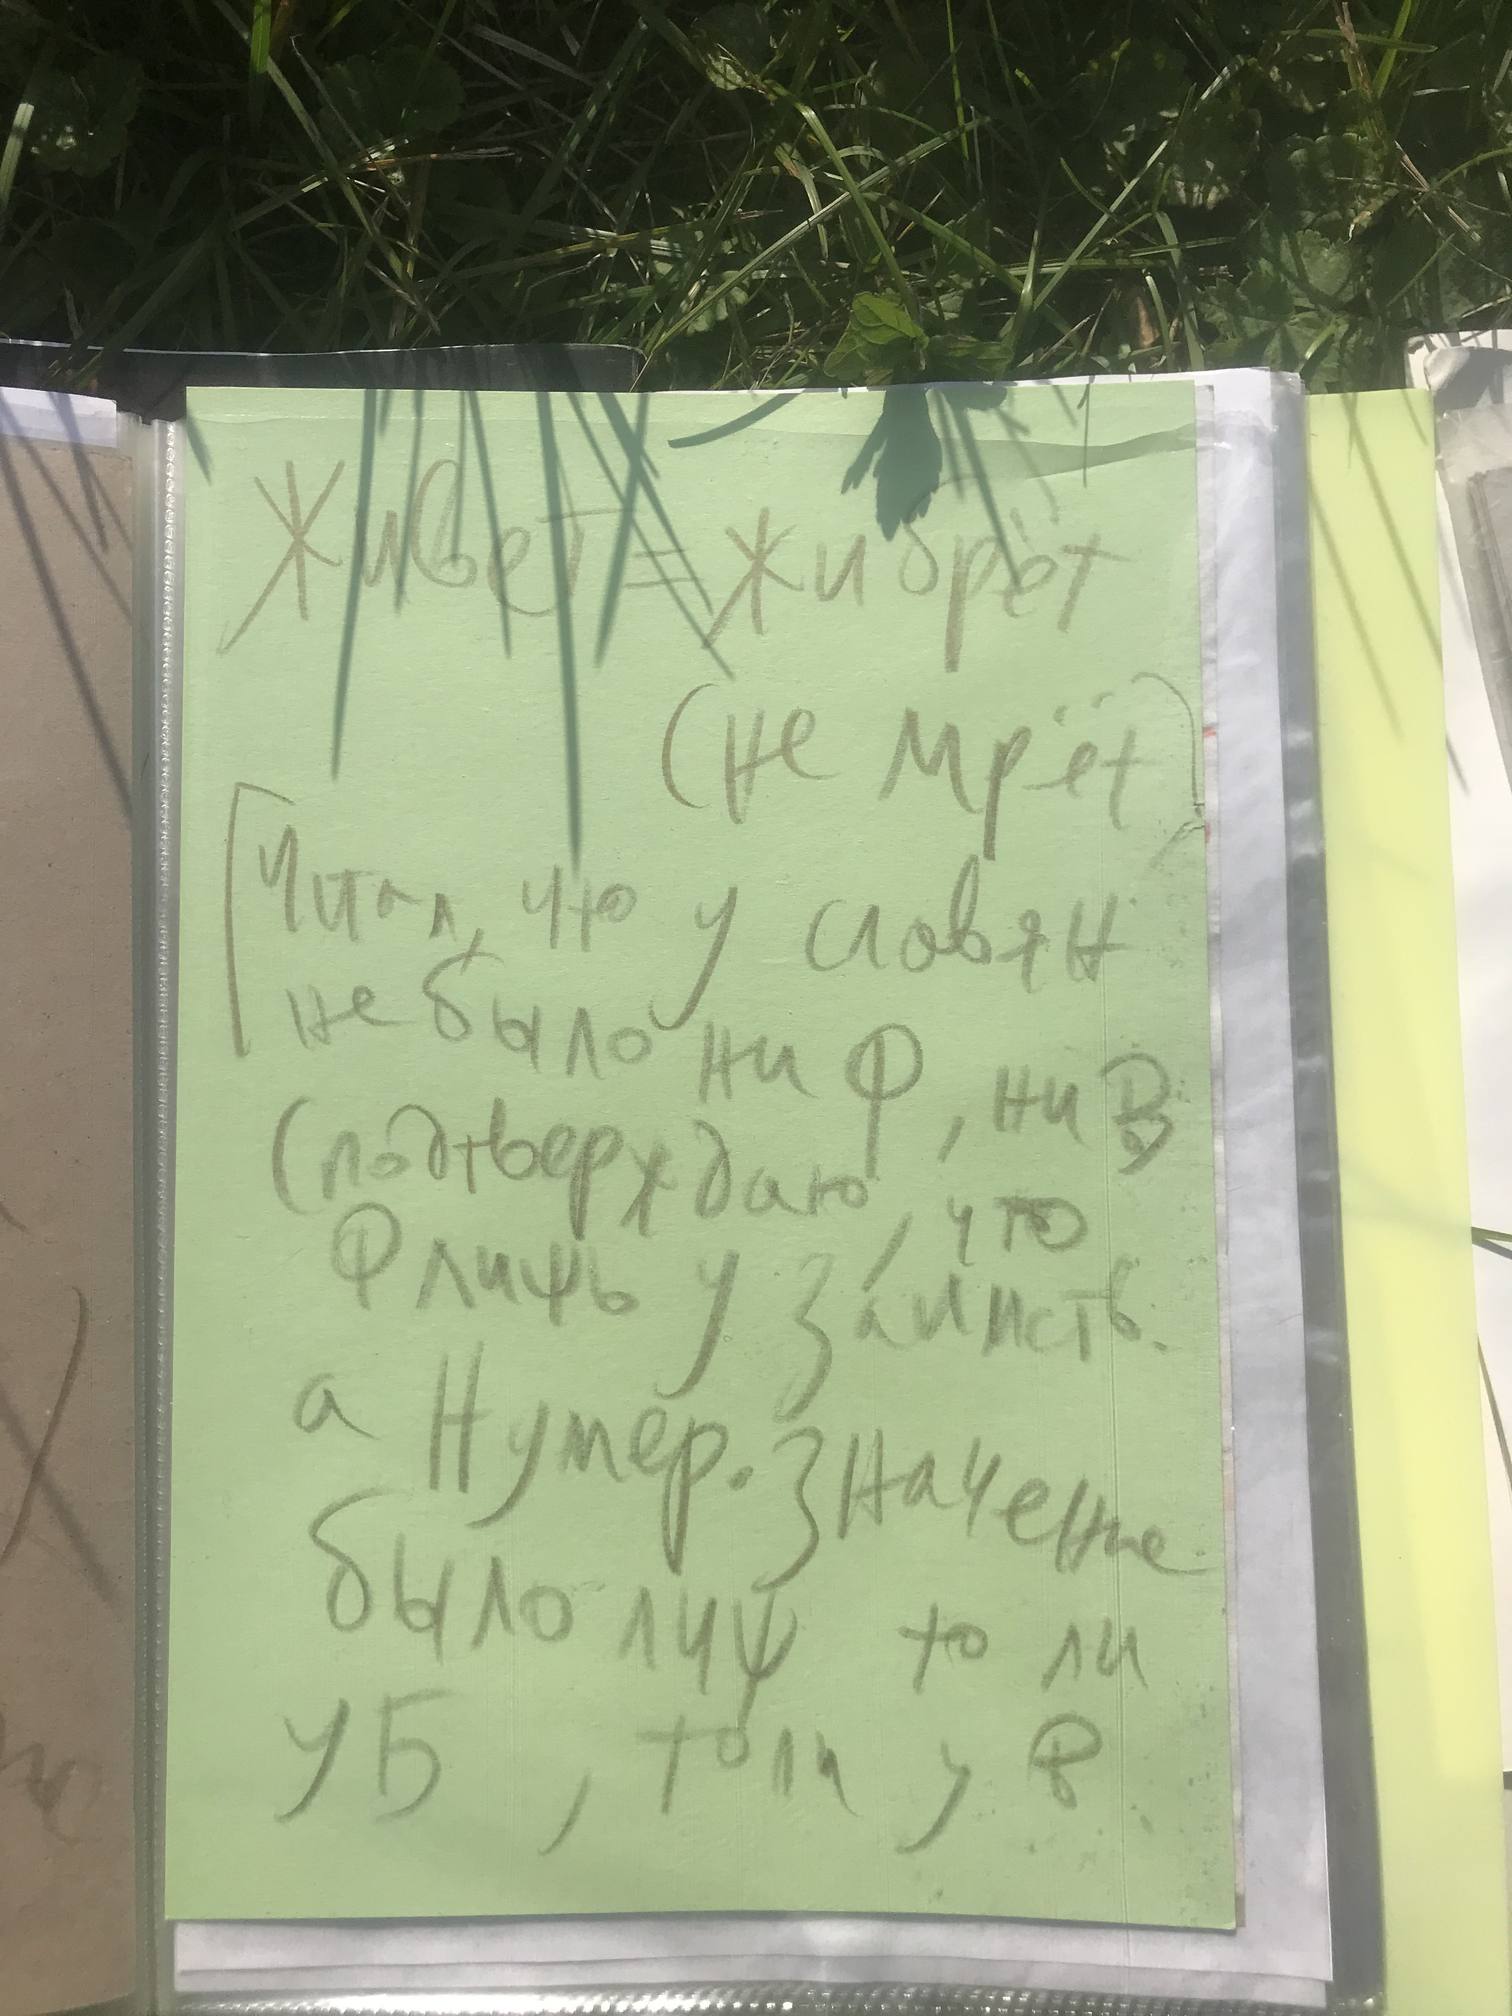 живет = жибрёт
(не мрёт)
[Читал, что у словян
не было ни Ф, ни В
(подтверждаю, что
Ф лишь у заимств.
а Нумер. значение
было лиш то ли
у Б, то ли у В